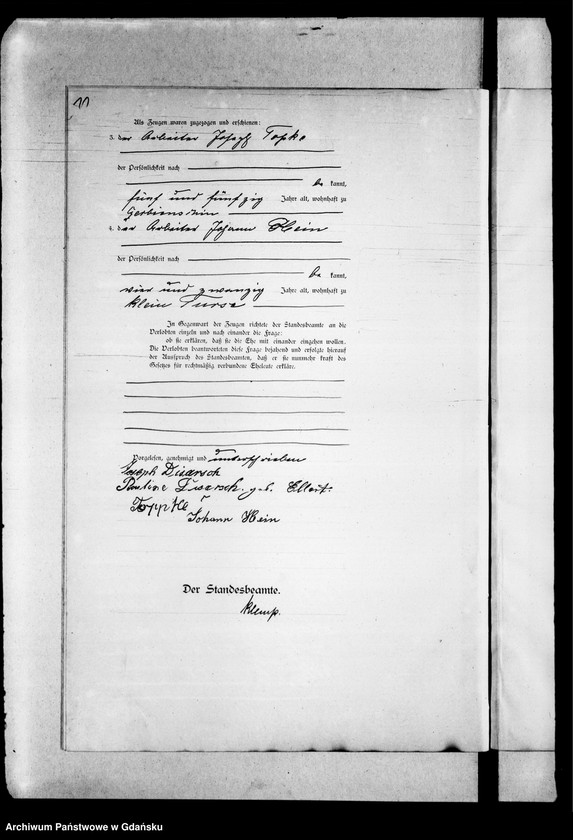 11
Als Zeugen waren zugezogen und erschienen:
3. der Arbeiter Joseph Topke
der Persönlichkeit nach
be kannt,
fünf und fünfzig Jahre alt, wohnhaft zu
4. der Arbeiter Johann Hein
der Persönlichkeit nach
be kannt,
vier und zwanzig Jahre alt, wohnhaft zu
Klein Turse
In Gegenwart der Zeugen richtete der Standesbeamte an die
Verlobten einzeln und nach einander die Frage:
ob sie erklären, daß sie die Ehe mit einander eingehen wollen.
Die Verlobten beantworteten diese Frage bejahend und erfolgte hierauf
der Ausspruch des Standesbeamten, daß er sie nunmehr kraft des
Gesetzes für rechtmäßig verbundene Eheleute erkläre.
Vorgelesen, genehmigt und unterschrieben
Joseph
Pauline geb.
Johann Hein
Der Standesbeamte.
Klemp.
Archiwum Państwowe w Gdańsku